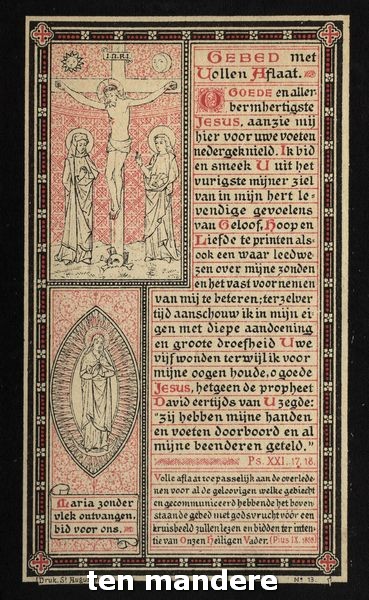 I.N.R.I.
GEBED met
Vollen Aflaat.
O GOEDE en aller
bermhertigste
JESUS, aanzie mij
hier voor uwe voeten
nedergeknield. Ik bid
en smeek U uit het
vurigste mijner ziel
van in mijn hert le-
vendige gevoelens
van Geloof, Hoop en
Liefde te printen als-
ook een waar leedwe
zen over mijne zonden
en het vast voornemen
van mij te beteren; terzelver
tijd aanschouw ik in mijn ei
gen met diepe aandoening
en groote droefheid Uwe
vijf wonden terwijl ik voor
mijne oogen houde, o goede
Jesus, hetgeen de propheet
David eertijds van U zegde:
"Zij hebben mijne handen
en voeten doorboord en al
mijne beenderen geteld."
Ps. XXI. 17, 18.
Volle aflaat toepasselijk aan de overlede-
nen voor al de geloovigen welke gebiecht
en gecommuniceerd hebbende het boven-
staande gebed met godsvrucht vóór een
kruisbeeld zullen lezen en bidden ter inten-
tie van Onzen Heiligen Vader. (Pius IX. 1858.)
Maria zonder
vlek ontvangen,
bid voor ons.
Druk. St August
No 13.
ten mandere